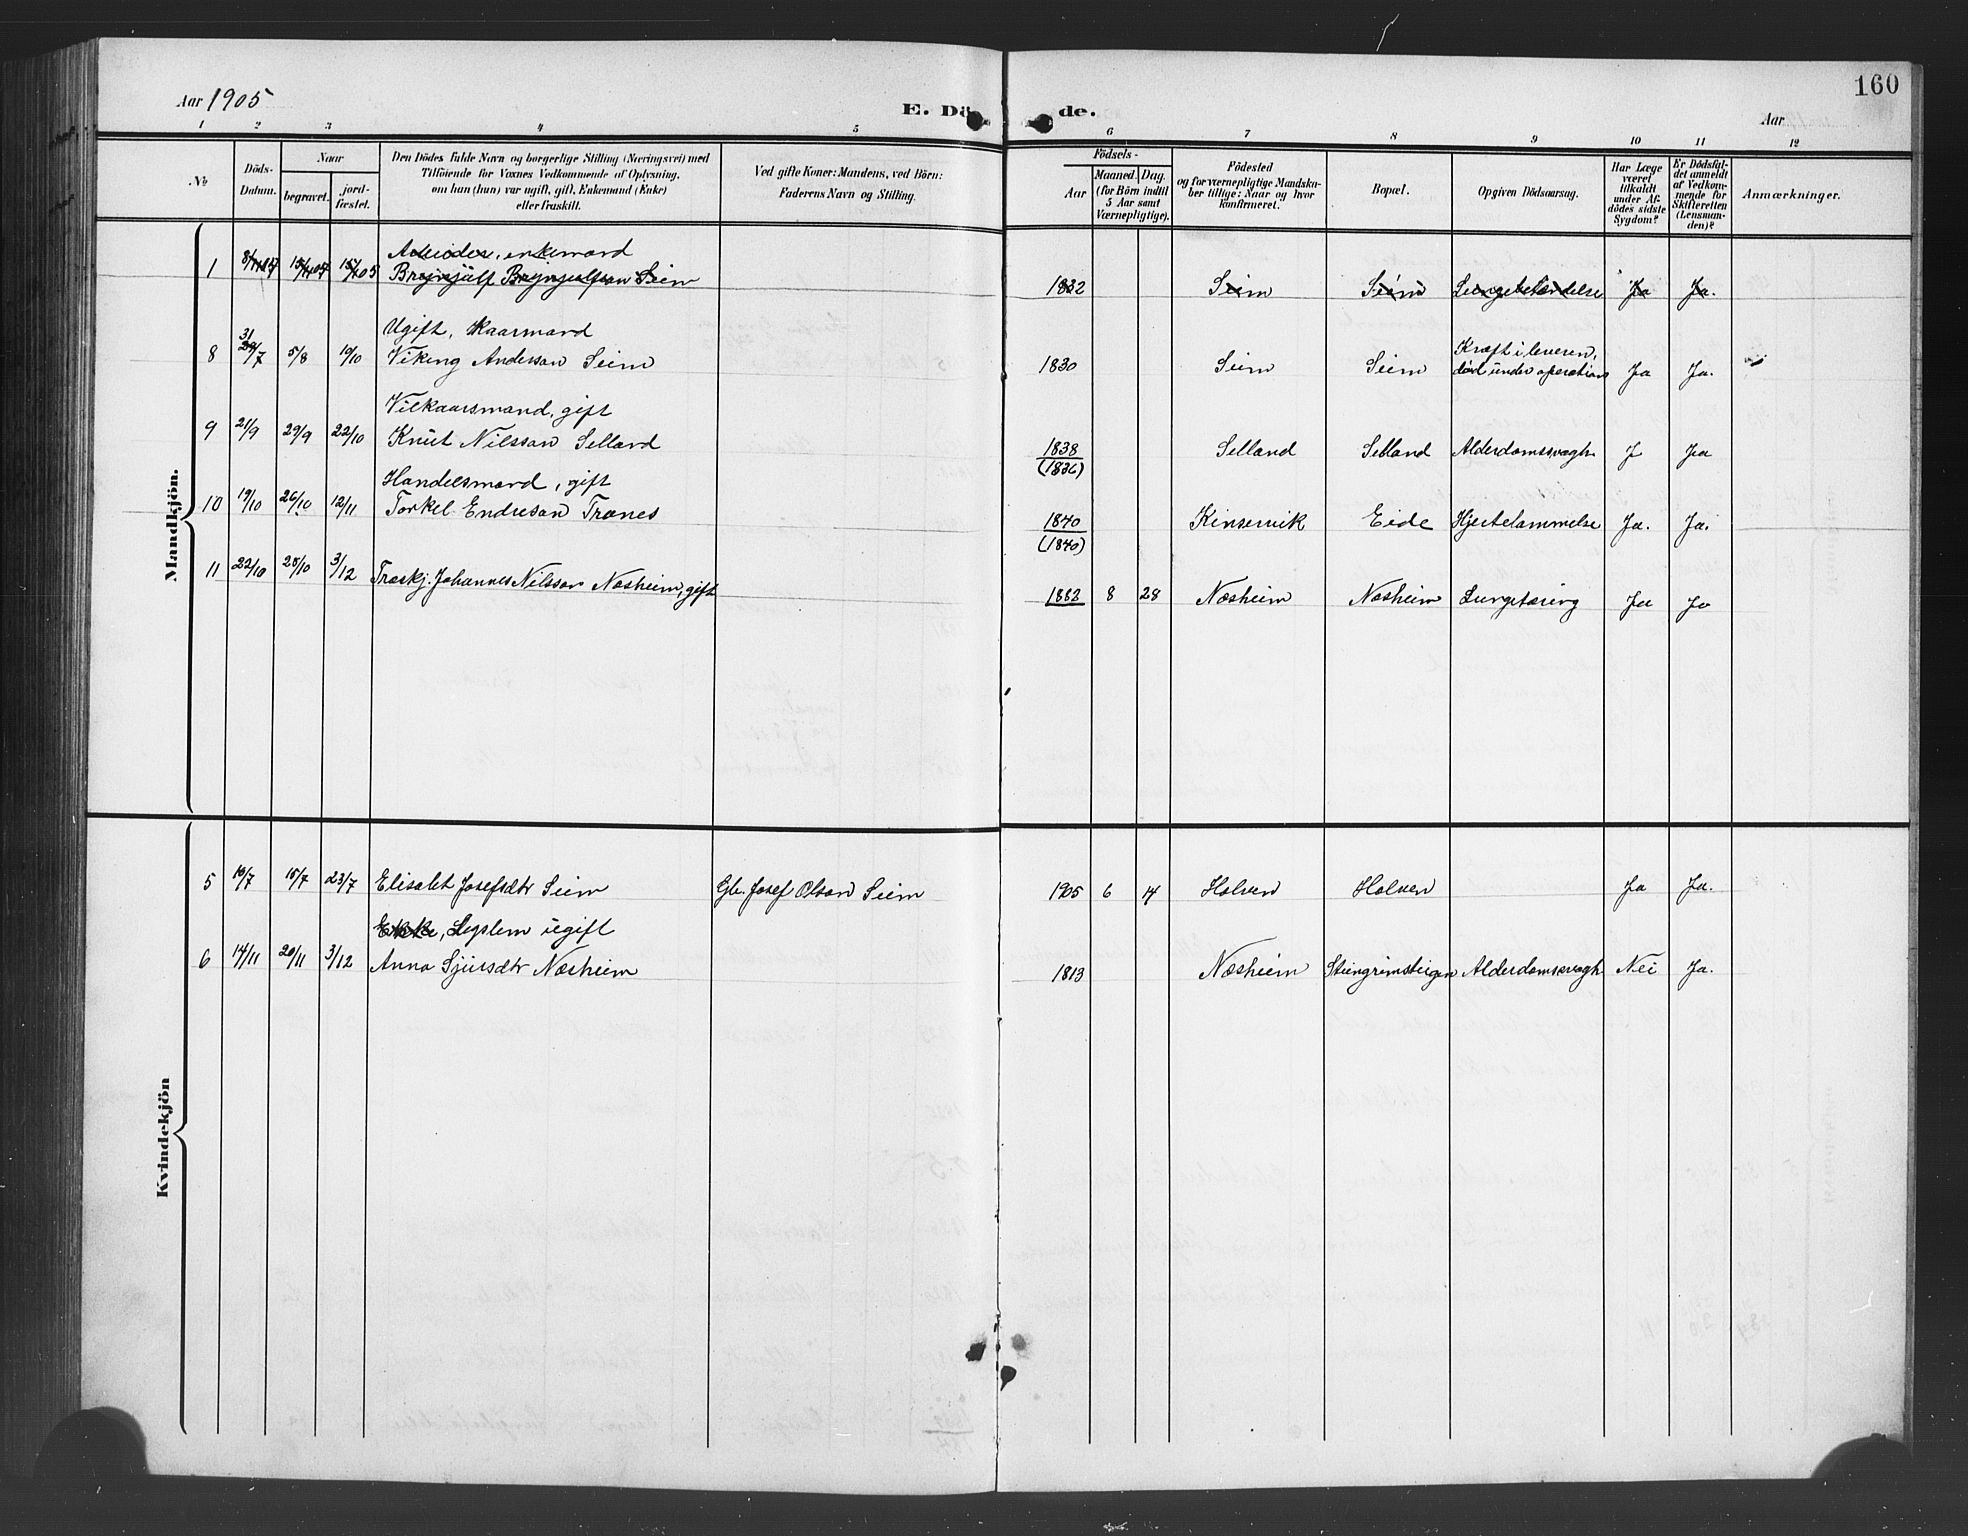 160
Aar 1905
E. Dö de.
Aar
1 2 3 4 5 6 7 8 9 10 11 12
No
Döds-
Datum.
Naar
begravet.
jord-
fæstet.
Den Dödes fulde Navn og borgerlige Stilling (Næringsvei) med
Tilföiende for Voxnes Vedkommende af Oplysning,
om han (hun) var ugift, gift, Enkemand (Enke)
eller fraskilt.
Ved gifte Koner: Mandens, ved Börn:
Faderens Navn og Stilling.
Födsels-
Aar
Maaned. Dag.
(for Börn indtil
5 Aar samt
Værnepligtige).
Födested
og for værnepligtige Mandska-
ber tillige: Naar og hvor
konfirmeret.
Bopæl.
Opgiven Dödsaarsag.
Har Læge
været
tilkaldt
under Af-
dödes sidste
Sygdom?
Er Dödsfal-
det anmeldt
af Vedkom-
mende for
Skifteretten
(Lensman-
den)?
Anmærkninger.
Mandkjön.
Arbeider, enkemand
1 Brynjulf Brynjulfson Seim 1832 Seim Seim Lungebetændelse Ja Ja.
Ugift, Kaarmand
8 31/7 5/8 19/10 Viking Anderson Seim 1830 Seim Seim Kræft i leveren, död under operation Ja Ja.
Vilkaarsmand, gift
9 21/9 29/9 22/10 Knut Nilsson Selland 1838 (1836) Selland Selland Alderdomssvagh. J Ja
Handelsmand, gift
10 19/10 26/10 12/11 Torkel Endreson Trones 1840 (1840) Kinservik Eide Hjertelammelse Ja. Ja.
11 22/10 28/10 3/12 Træskj. Johannes Nilsson Næsheim, gift 1882 8 28 Næsheim Næsheim Lungetæring Ja Ja
Kvindekjön
5 10/7 15/7 23/7 Elisabet Josefsdtr Seim Gbr. Josef Olson Seim 1905 6 14 Holven Holven Ja Ja.
Enke, Legslem ugift
6 14/11 20/11 3/12 Anna Sjursdtr Næsheim 1813 Næsheim Steingrimsteigen Alderdomssvagh. Nei Ja.